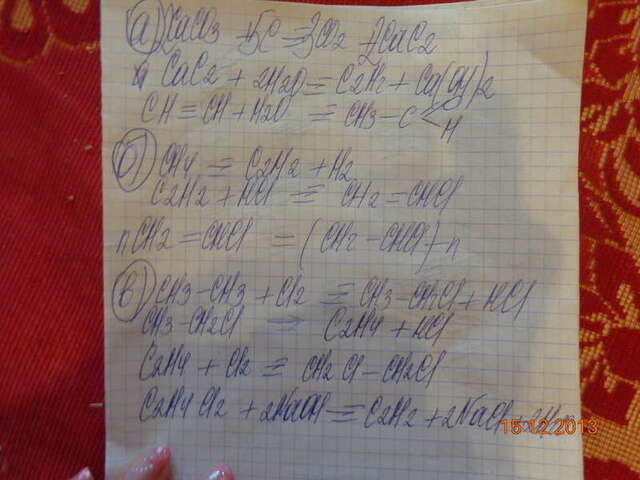 а) CaCO3 + 5C = 3CO2 + 2CaC2
CaC2 + 2H2O = C2H2 + Ca(OH)2
CH ≡ CH + H2O = CH3 - C O H
б) CH4 = C2H2 + H2
C2H2 + HCl = CH2 = CHCl
nCH2 = CHCl = (CH2 - CHCl)-n
в) CH3-CH3 + Cl2 = CH3-CH2Cl + HCl
CH3-CH2Cl → C2H4 + HCl
C2H4 + Cl2 = CH2Cl - CH2Cl
C2H4Cl2 + 2NaOH = C2H2 + 2NaCl + 2H2O
15.12.2013